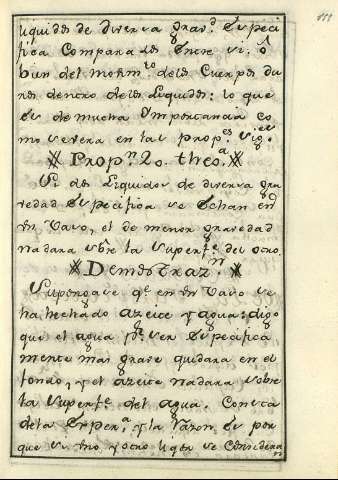 111
liquidos de diversa gravd. Especi
fica Comparados Entre si: ô
bien del movimto. delos Cuerpos du
ros dentro delos Liquidos: lo que
es de mucha Ymportancia Co
mo severa en las Propes. sigtes.
Propn. 2o. theoa.
Si dos Liquidos de diversa gra
vedad Especifica se Echan en
Un Vaso, el de menor gravedad
nadara sôbre la Superfe. del otro
Demostrazn.
Supongase qe. en Un Vaso se
ha hechado azeite y agua: digo
que el agua pr. ser Especifica
mente mas grave quedara en el
fondo, y el azeite nadara sobre
la Superfe. del agua. Consta
dela Expera. y la Razon, Es por
que si Uno y otro liqor. se Considera